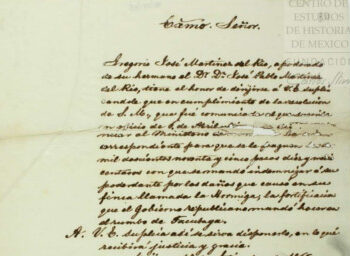 CENTRO DE
ESTUDIOS
DE HISTORIA
DE MEXICO
Exmo. Señor.
Gregorio José Martinez del Rio, apoderado
de su hermano el Dr. Dn. José Pablo Martinez
del Rio, tiene el honor de dirijirse á V.E. supli
candole que en cumplimiento de la resolucion
de S. M., que fué comunica
en oficio de 6 de Abril
nicar al Ministerio
correspondiente para que se le paguen
mil doscientos noventa y cinco pesos diez y nueve
centavos con que se mandó indemnizar á su
poderdante por los daños que causó en su
finca llamada la Hormiga, la fortificacion
que el Gobierno republicano mandó hacer en
el rumbo de Tacubaya.
A: V. E. suplica así se sirva disponerlo, en lo que
recibirá justicia y gracia.